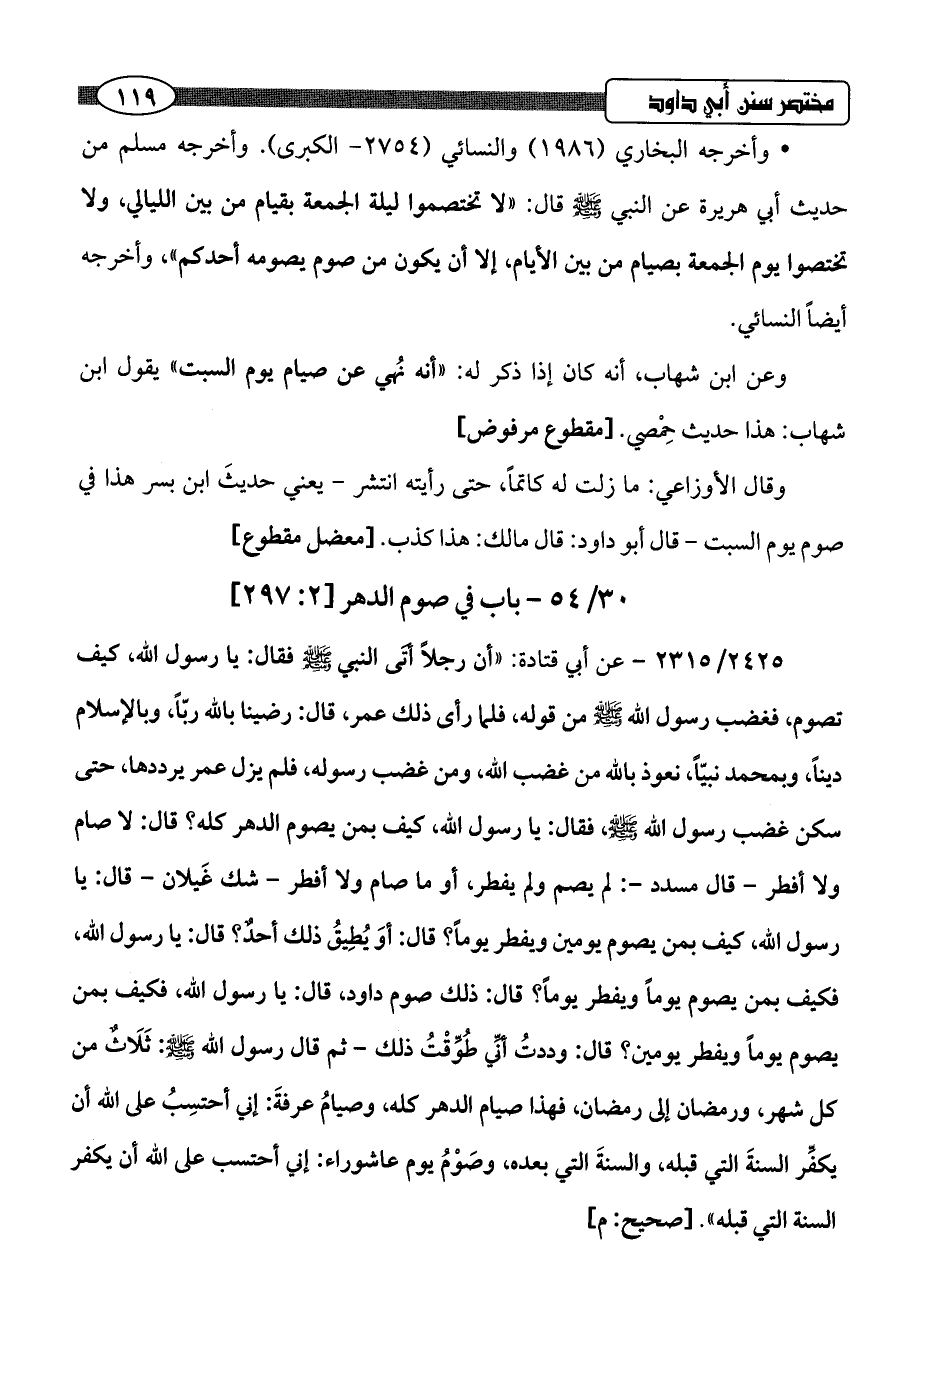 مختصر سنن أبي داود
١١٩
• وأخرجه البخاري (١٩٨٦) والنسائي (٢٧٥٤- الكبرى). وأخرجه مسلم من
حديث أبي هريرة عن النبي ﷺ قال: «لا تختصموا ليلة الجمعة بقيام من بين الليالي، ولا
تختصوا يوم الجمعة بصيام من بين الأيام، إلا أن يكون من صوم يصومه أحدكم»، وأخرجه
أيضاً النسائي.
وعن ابن شهاب، أنه كان إذا ذكر له: «أنه نُهي عن صيام يوم السبت» يقول ابن
شهاب: هذا حديث حِمْصي. [مقطوع مرفوض]
وقال الأوزاعي: ما زلت له كاتماً، حتى رأيته انتشر - يعني حديثَ ابن بسر هذا في
صوم يوم السبت - قال أبو داود: قال مالك: هذا كذب. [معضل مقطوع]
٥٤/٣٠ - باب في صوم الدهر [٢: ٢٩٧]
٢٣١٥/٢٤٢٥ - عن أبي قتادة: «أن رجلاً أتَى النبي ﷺ فقال: يا رسول الله، كيف
تصوم، فغضب رسول الله ﷺ من قوله، فلما رأى ذلك عمر، قال: رضينا بالله ربّاً، وبالإسلام
ديناً، وبمحمد نبيّاً، نعوذ بالله من غضب الله، ومن غضب رسوله، فلم يزل عمر يرددها، حتى
سكن غضب رسول الله ﷺ، فقال: يا رسول الله، كيف بمن يصوم الدهر كله؟ قال: لا صام
ولا أفطر - قال مسدد -: لم يصم ولم يفطر، أو ما صام ولا أفطر - شك غَيلان - قال: يا
رسول الله، كيف بمن يصوم يومين ويفطر يوماً؟ قال: أوَ يُطِيقُ ذلك أحدٌ؟ قال: يا رسول الله،
فكيف بمن يصوم يوماً ويفطر يوماً؟ قال: ذلك صوم داود، قال: يا رسول الله، فكيف بمن
يصوم يوماً ويفطر يومين؟ قال: وددتُ أنِّي طُوِّقْتُ ذلك - ثم قال رسول الله ﷺ: ثَلَاثٌ من
كل شهر، ورمضان إلى رمضان، فهذا صيام الدهر كله، وصيامُ عرفةَ: إني أحتسِبُ على الله أن
يكفِّر السنةَ التي قبله، والسنةَ التي بعده، وصَوْمُ يوم عاشوراء: إني أحتسب على الله أن يكفر
السنة التي قبله». [صحيح: م]